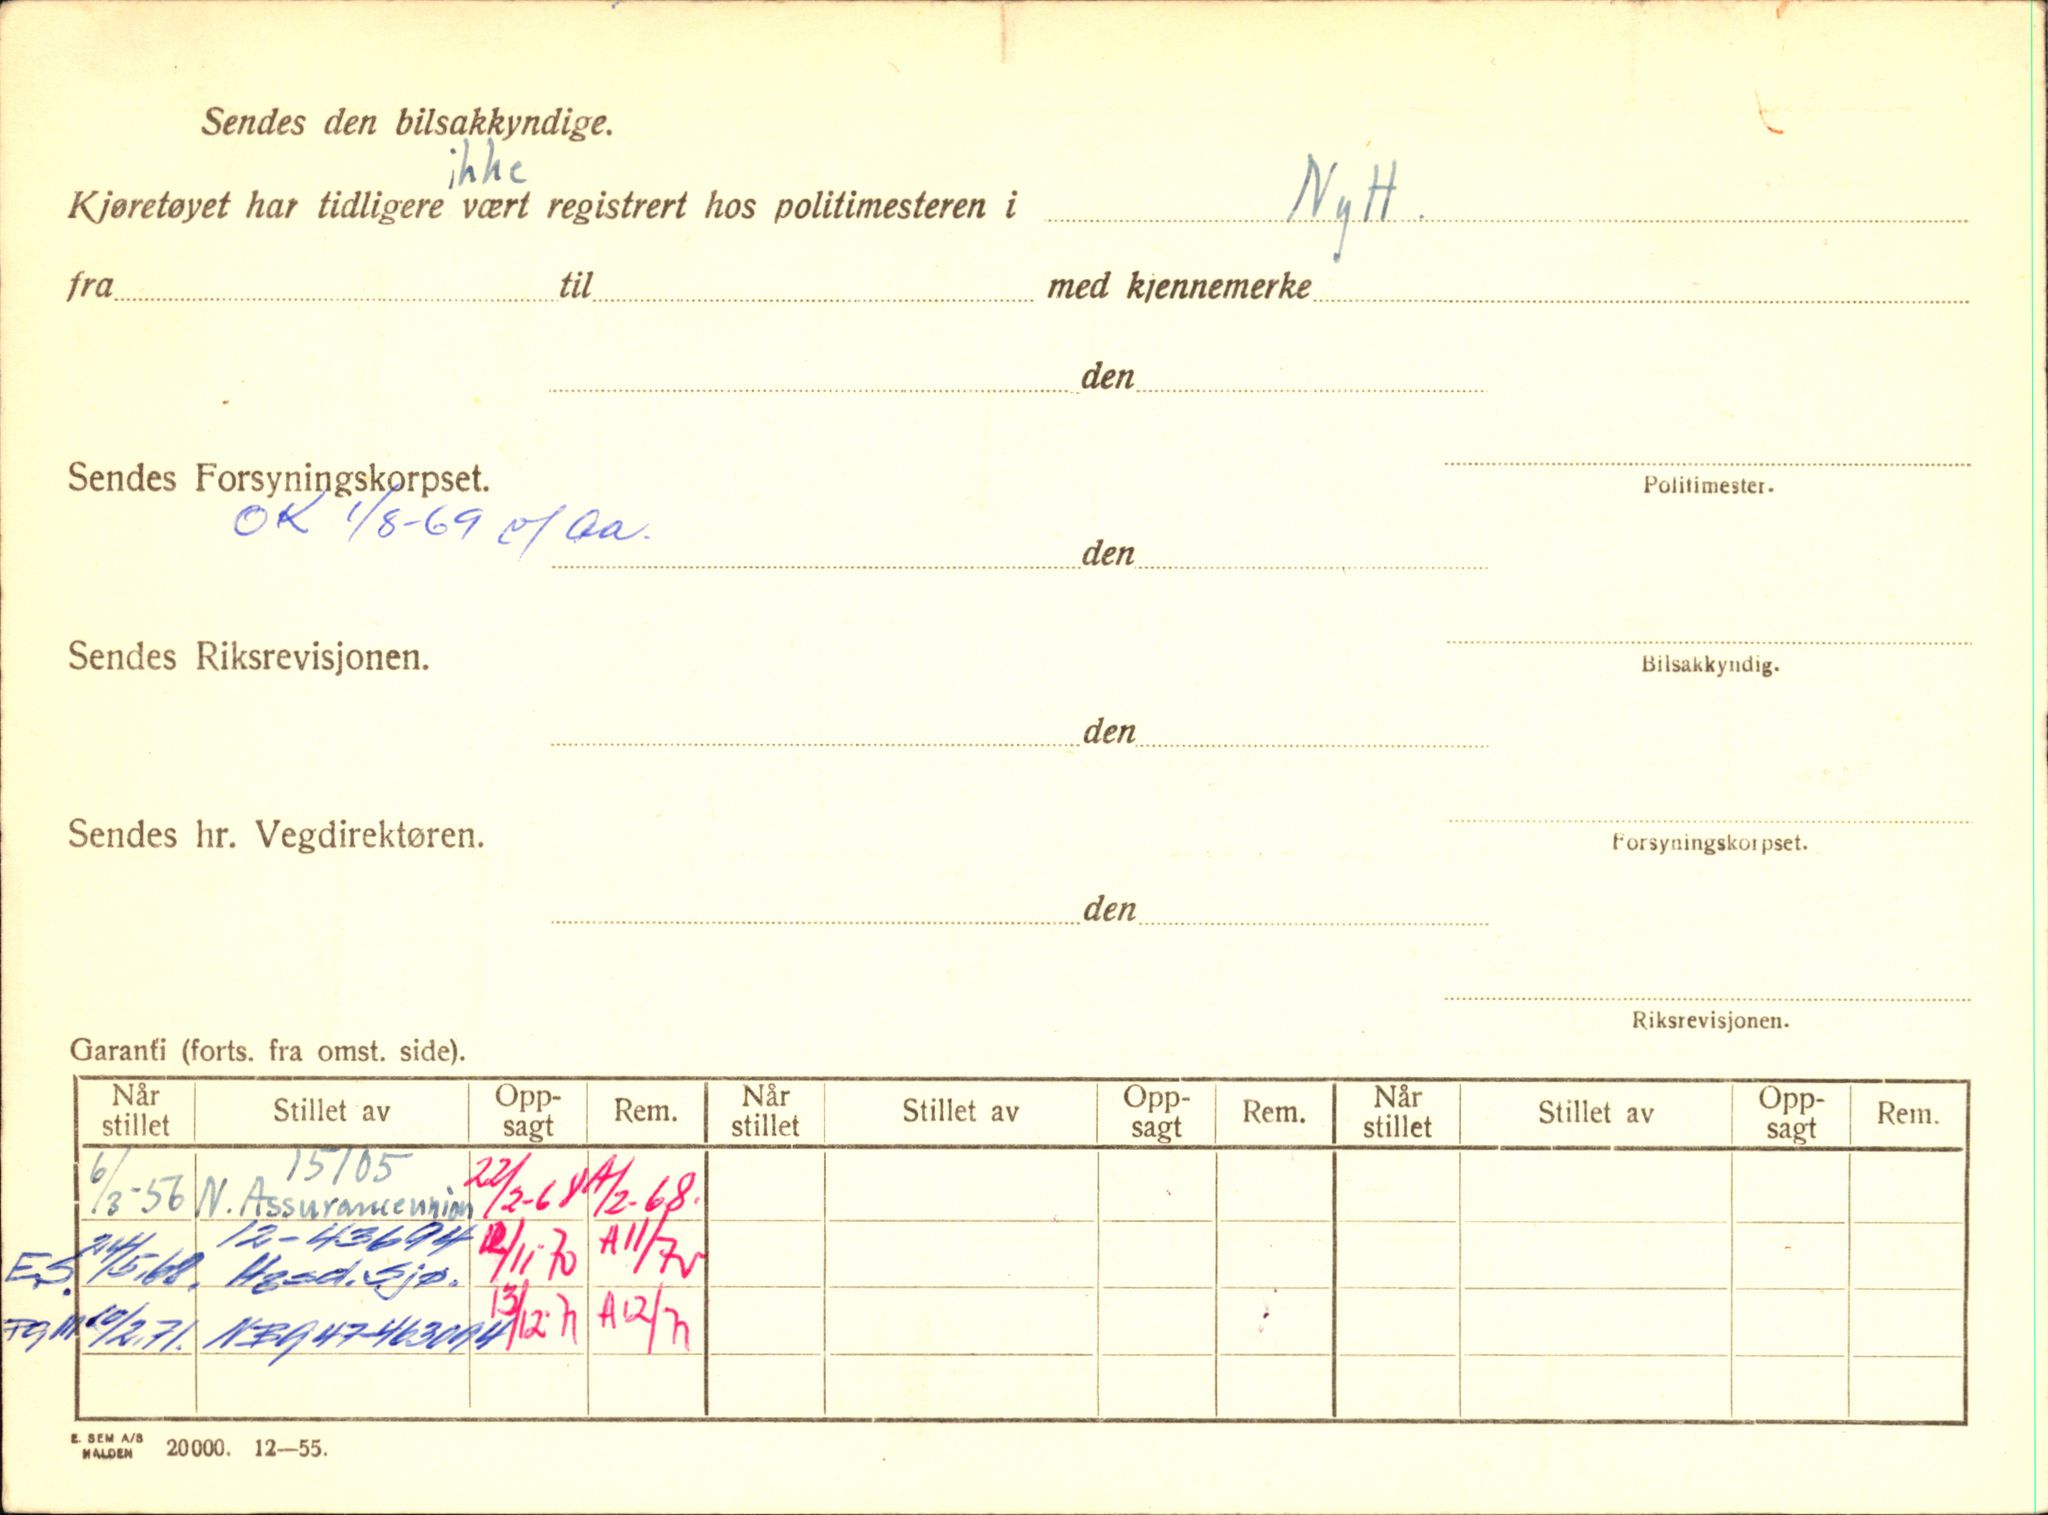 Sendes den bilsakkyndige.
ikke
Kjøretøyet har tidligere vært registrert hos politimesteren i Nytt.
fra til med kjennemerke
den
Sendes Forsyningskorpset.
Politimester.
OK 1/8-69
den
Sendes Riksrevisjonen.
Bilsakkyndig.
den
Sendes hr. Vegdirektøren.
Forsyningskorpset.
den
Riksrevisjonen.
Garanti (forts. fra omst. side).
Når stillet Stillet av Opp-sagt Rem. Når stillet Stillet av Opp-sagt Rem. Når stillet Stillet av Opp-sagt Rem.
15105
6/3-56 N. Assuranceunion 22/2-68 A/2-68.
12-43694
E.S. 24/5.68. 11-70 A11/70
10/2.71. 13/12-71 A12/71
E. SEM A/S
HALDEN 20000. 12—55.